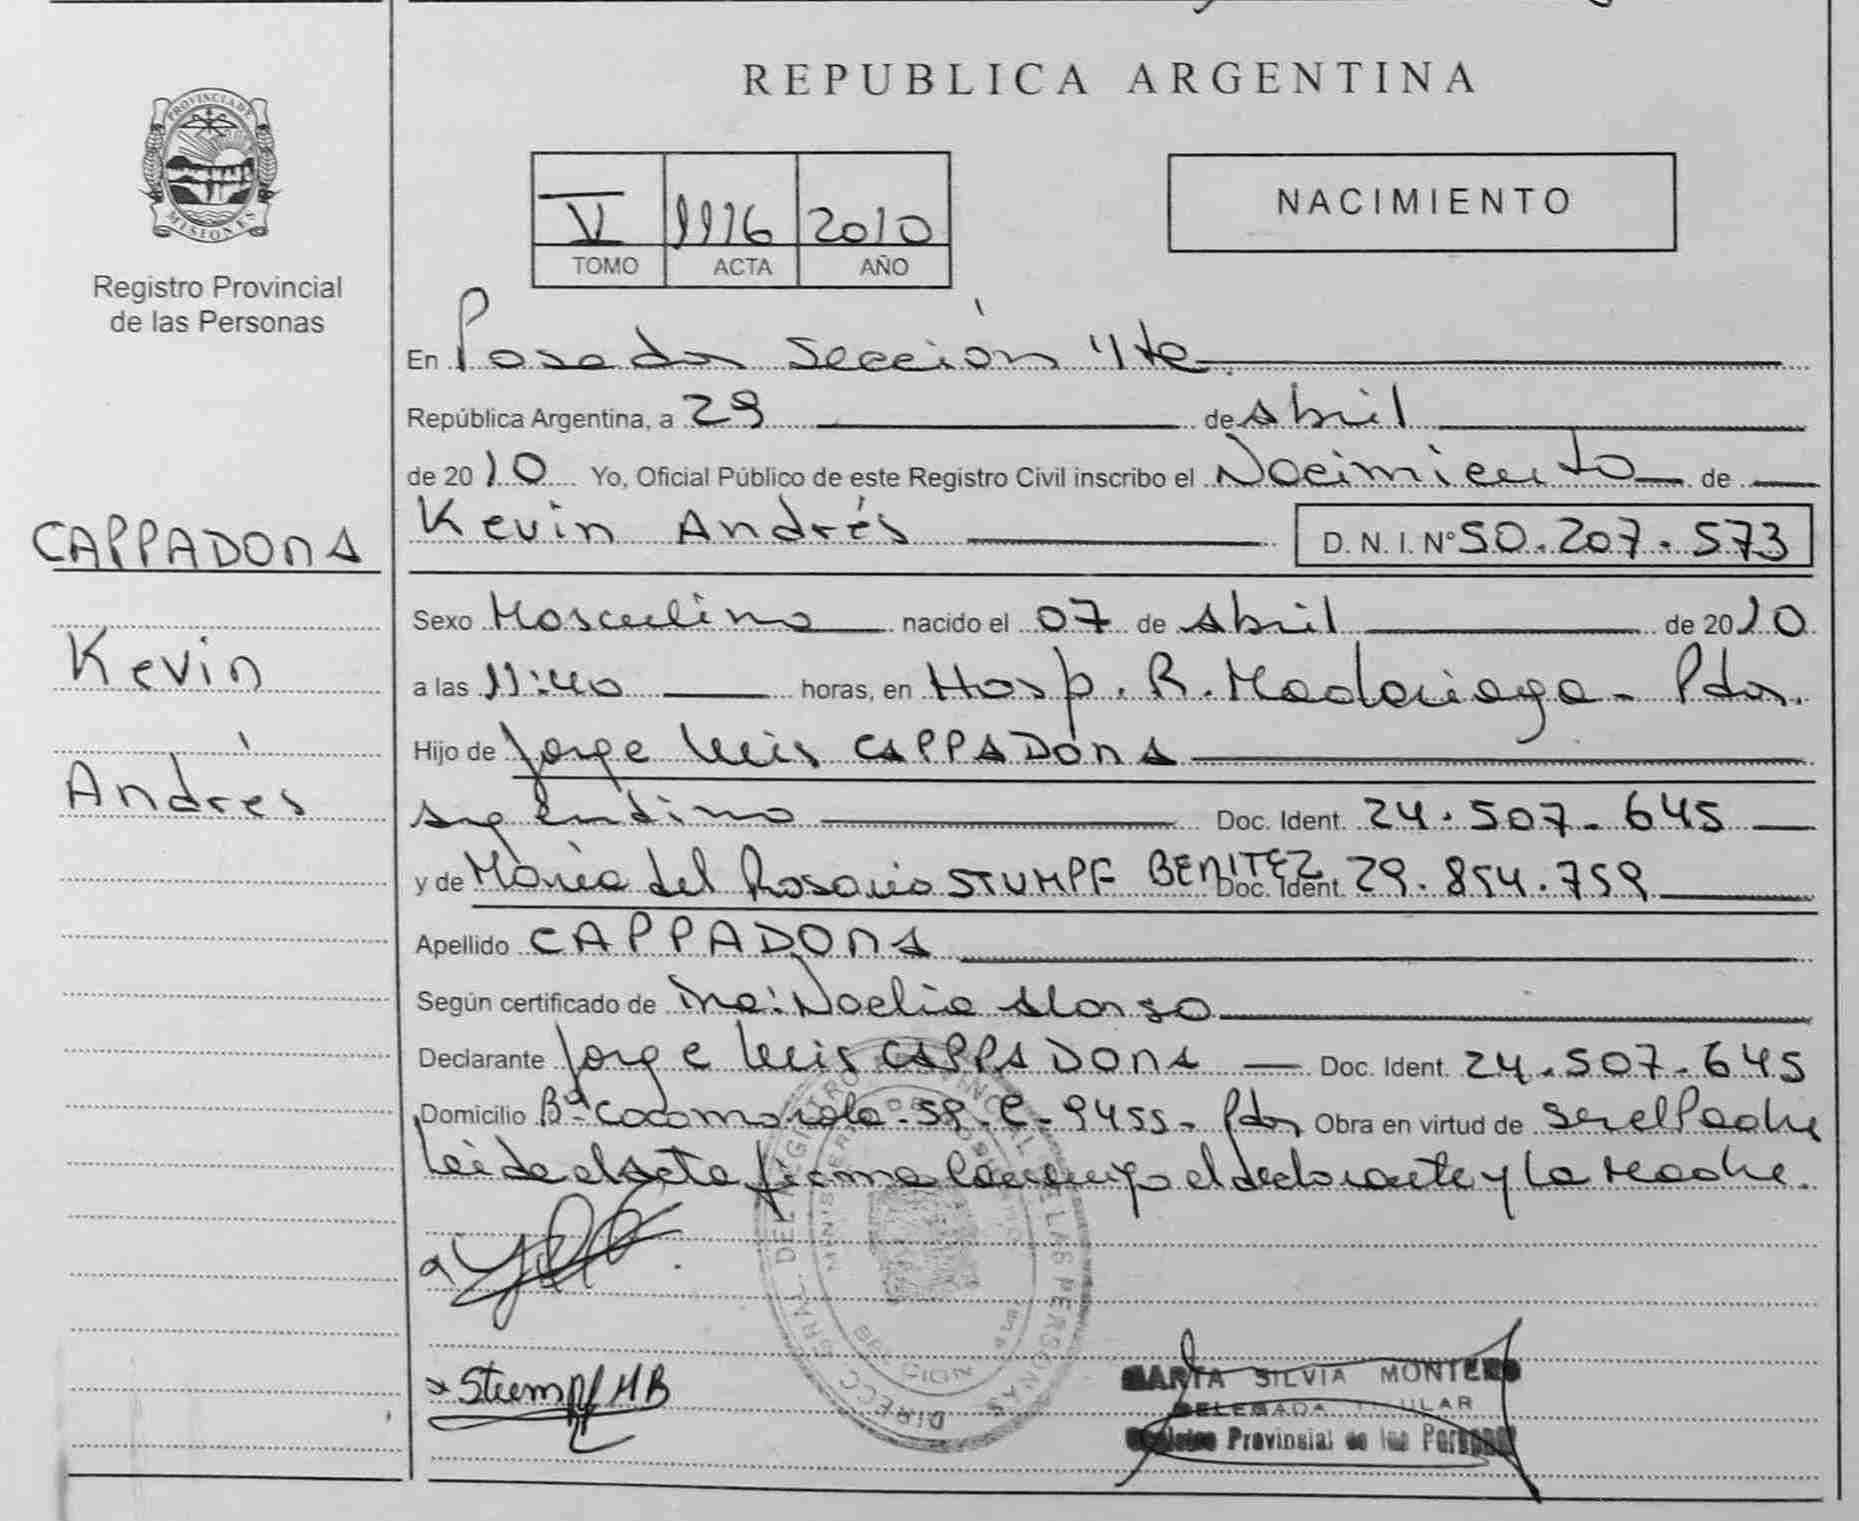 REPUBLICA ARGENTINA
PROVINCIA DE MISIONES
Registro Provincial
de las Personas
V 1116 2010
TOMO ACTA AÑO
NACIMIENTO
En Posadas Sección 4te
República Argentina, a 29 de Abril
de 2010 Yo, Oficial Público de este Registro Civil inscribo el Nacimiento de
Kevin Andrés D.N.I. Nº 50.207.573
CAPPADONA
Kevin
Andrés
Sexo Masculino nacido el 07 de Abril de 2010
a las 11:40 horas, en Hosp. R. Madariaga - Pdas.
Hijo de Jorge Luis CAPPADONA
Argentino Doc. Ident. 24.507.645
y de María del Rosario STUMPF BENITEZ Doc. Ident. 29.854.759
Apellido CAPPADONA
Según certificado de Noelia Alonso
Declarante Jorge Luis CAPPADONA Doc. Ident. 24.507.645
Domicilio Bº Cocomarola - 59 - C - 9455 - Pdas Obra en virtud de ser el Padre
Leída el Acta firma conmigo el declarante y la Madre.
Stumpf MB
MARTA SILVIA MONTERO
DELEGADA TITULAR
Provinsial de las Personas